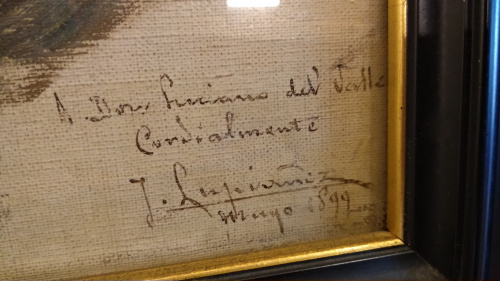 A Don Luciano del Valle
Cordialmente
J. Lupiañez
Mayo 1899